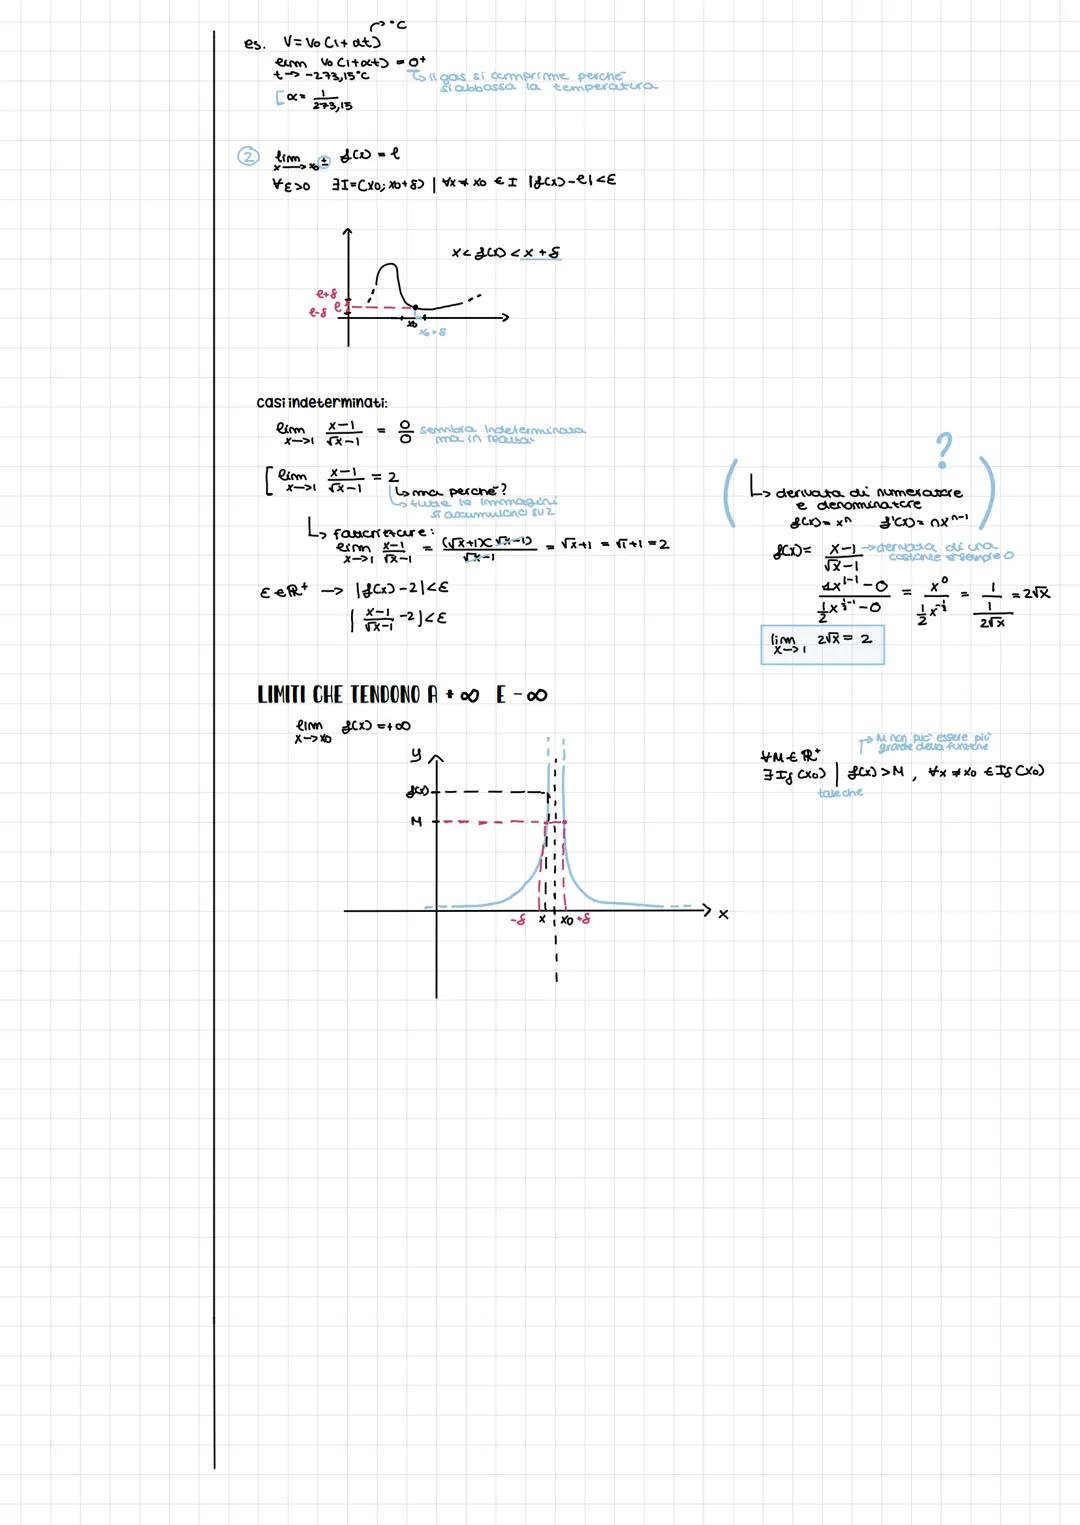 °C
es. V = V₀ (1 + αt)
lim V₀ (1 + αt) = 0⁺
t → -273,15°C
↳ il gas si comprime perché
si abbassa la temperatura
[α = 1/273,15
② lim f(x) = l
x → x₀±
∀ε>0 ∃I=(x₀; x₀+δ) | ∀x ≠ x₀ ∈ I |f(x)-l|<ε
x < f(x) < x + δ
l+δ
l
l-δ
x₀
x₀+δ
casi indeterminati:
lim x→1 (x-1)/(√x-1) = 0/0 sembra indeterminata
ma in realtà
[lim x→1 (x-1)/(√x-1) = 2
↳ ma perché?
↳ tutte le immagini
si accumulano su 2
↳ fattorizzare:
lim x→1 (x-1)/(√x-1) = (√x+1)(√x-1)/(√x-1) = √x+1 = √1+1 = 2
ε∈ℝ⁺ → |f(x)-2|<ε
|(x-1)/(√x-1) -2|<ε
?
↳ derivata di numeratore
e denominatore
f(x)= xⁿ f'(x)= nxⁿ⁻¹
f(x)= (x-1)/(√x-1) → derivata di una
costante è sempre 0
(1x¹⁻¹-0)/(½x^(½-1)-0) = x⁰/(½x^(-½)) = 1/(1/(2√x)) = 2√x
lim x→1 2√x = 2
LIMITI CHE TENDONO A +∞ E -∞
lim f(x) = +∞
x→x₀
∀M∈ℝ⁺ → M non può essere più
grande della funzione
∃ Iδ(x₀) | f(x)>M, ∀x ≠ x₀ ∈ Iδ(x₀)
tale che
y
f(x)
M
-δ x x₀ +δ
x